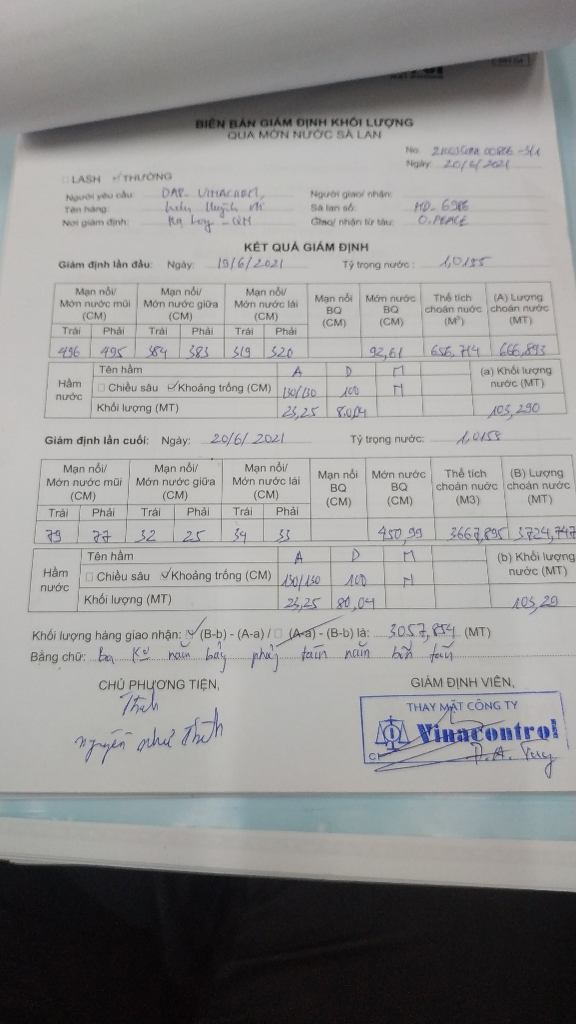 BIÊN BẢN GIÁM ĐỊNH KHỐI LƯỢNG
QUA MỚN NƯỚC SÀ LAN
No:
Ngày: 20/6/2021
LASH ✓ THƯỜNG
Người yêu cầu: DAP- VINACHEM, Người giao/ nhận:
Tên hàng: lưu huỳnh Sà lan số: MD- 6986
Nơi giám định: Hạ Long - QN Giao/ nhận từ tàu: O.PEACE
KẾT QUẢ GIÁM ĐỊNH
Giám định lần đầu: Ngày: 19/6/2021 Tỷ trọng nước: 1,0155
Mạn nổi/ Mớn nước mũi (CM) Mạn nổi/ Mớn nước giữa (CM) Mạn nổi/ Mớn nước lái (CM) Mạn nổi BQ (CM) Mớn nước BQ (CM) Thể tích choán nước (M³) (A) Lượng choán nước (MT)
Trái Phải Trái Phải Trái Phải
496 495 384 383 319 320 92,61 656,714 666,893
Hầm nước
Tên hầm A D M (a) Khối lượng nước (MT)
Chiều sâu ✓ Khoảng trống (CM) 130/130 100 M
Khối lượng (MT) 23,25 80,04 103,290
Giám định lần cuối: Ngày: 20/6/2021 Tỷ trọng nước: 1,0155
Mạn nổi/ Mớn nước mũi (CM) Mạn nổi/ Mớn nước giữa (CM) Mạn nổi/ Mớn nước lái (CM) Mạn nổi BQ (CM) Mớn nước BQ (CM) Thể tích choán nước (M3) (B) Lượng choán nước (MT)
Trái Phải Trái Phải Trái Phải
79 77 32 25 34 33 450,99 3667,895 3724,747
Hầm nước
Tên hầm A D M (b) Khối lượng nước (MT)
Chiều sâu ✓ Khoảng trống (CM) 130/130 100 M
Khối lượng (MT) 23,25 80,04 103,29
Khối lượng hàng giao nhận: ✓ (B-b) - (A-a) / (A-a) - (B-b) là: 3057,854 (MT)
Bằng chữ: Ba năm bảy phảy tám năm bốn tấn
CHỦ PHƯƠNG TIỆN, GIÁM ĐỊNH VIÊN,
Thịnh
Nguyễn như Thịnh
THAY MẶT CÔNG TY
Vinacontrol